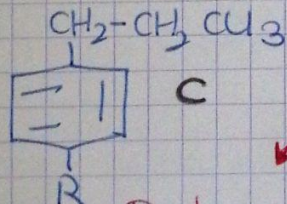 CH₂-CH₂ CH₃
C
R